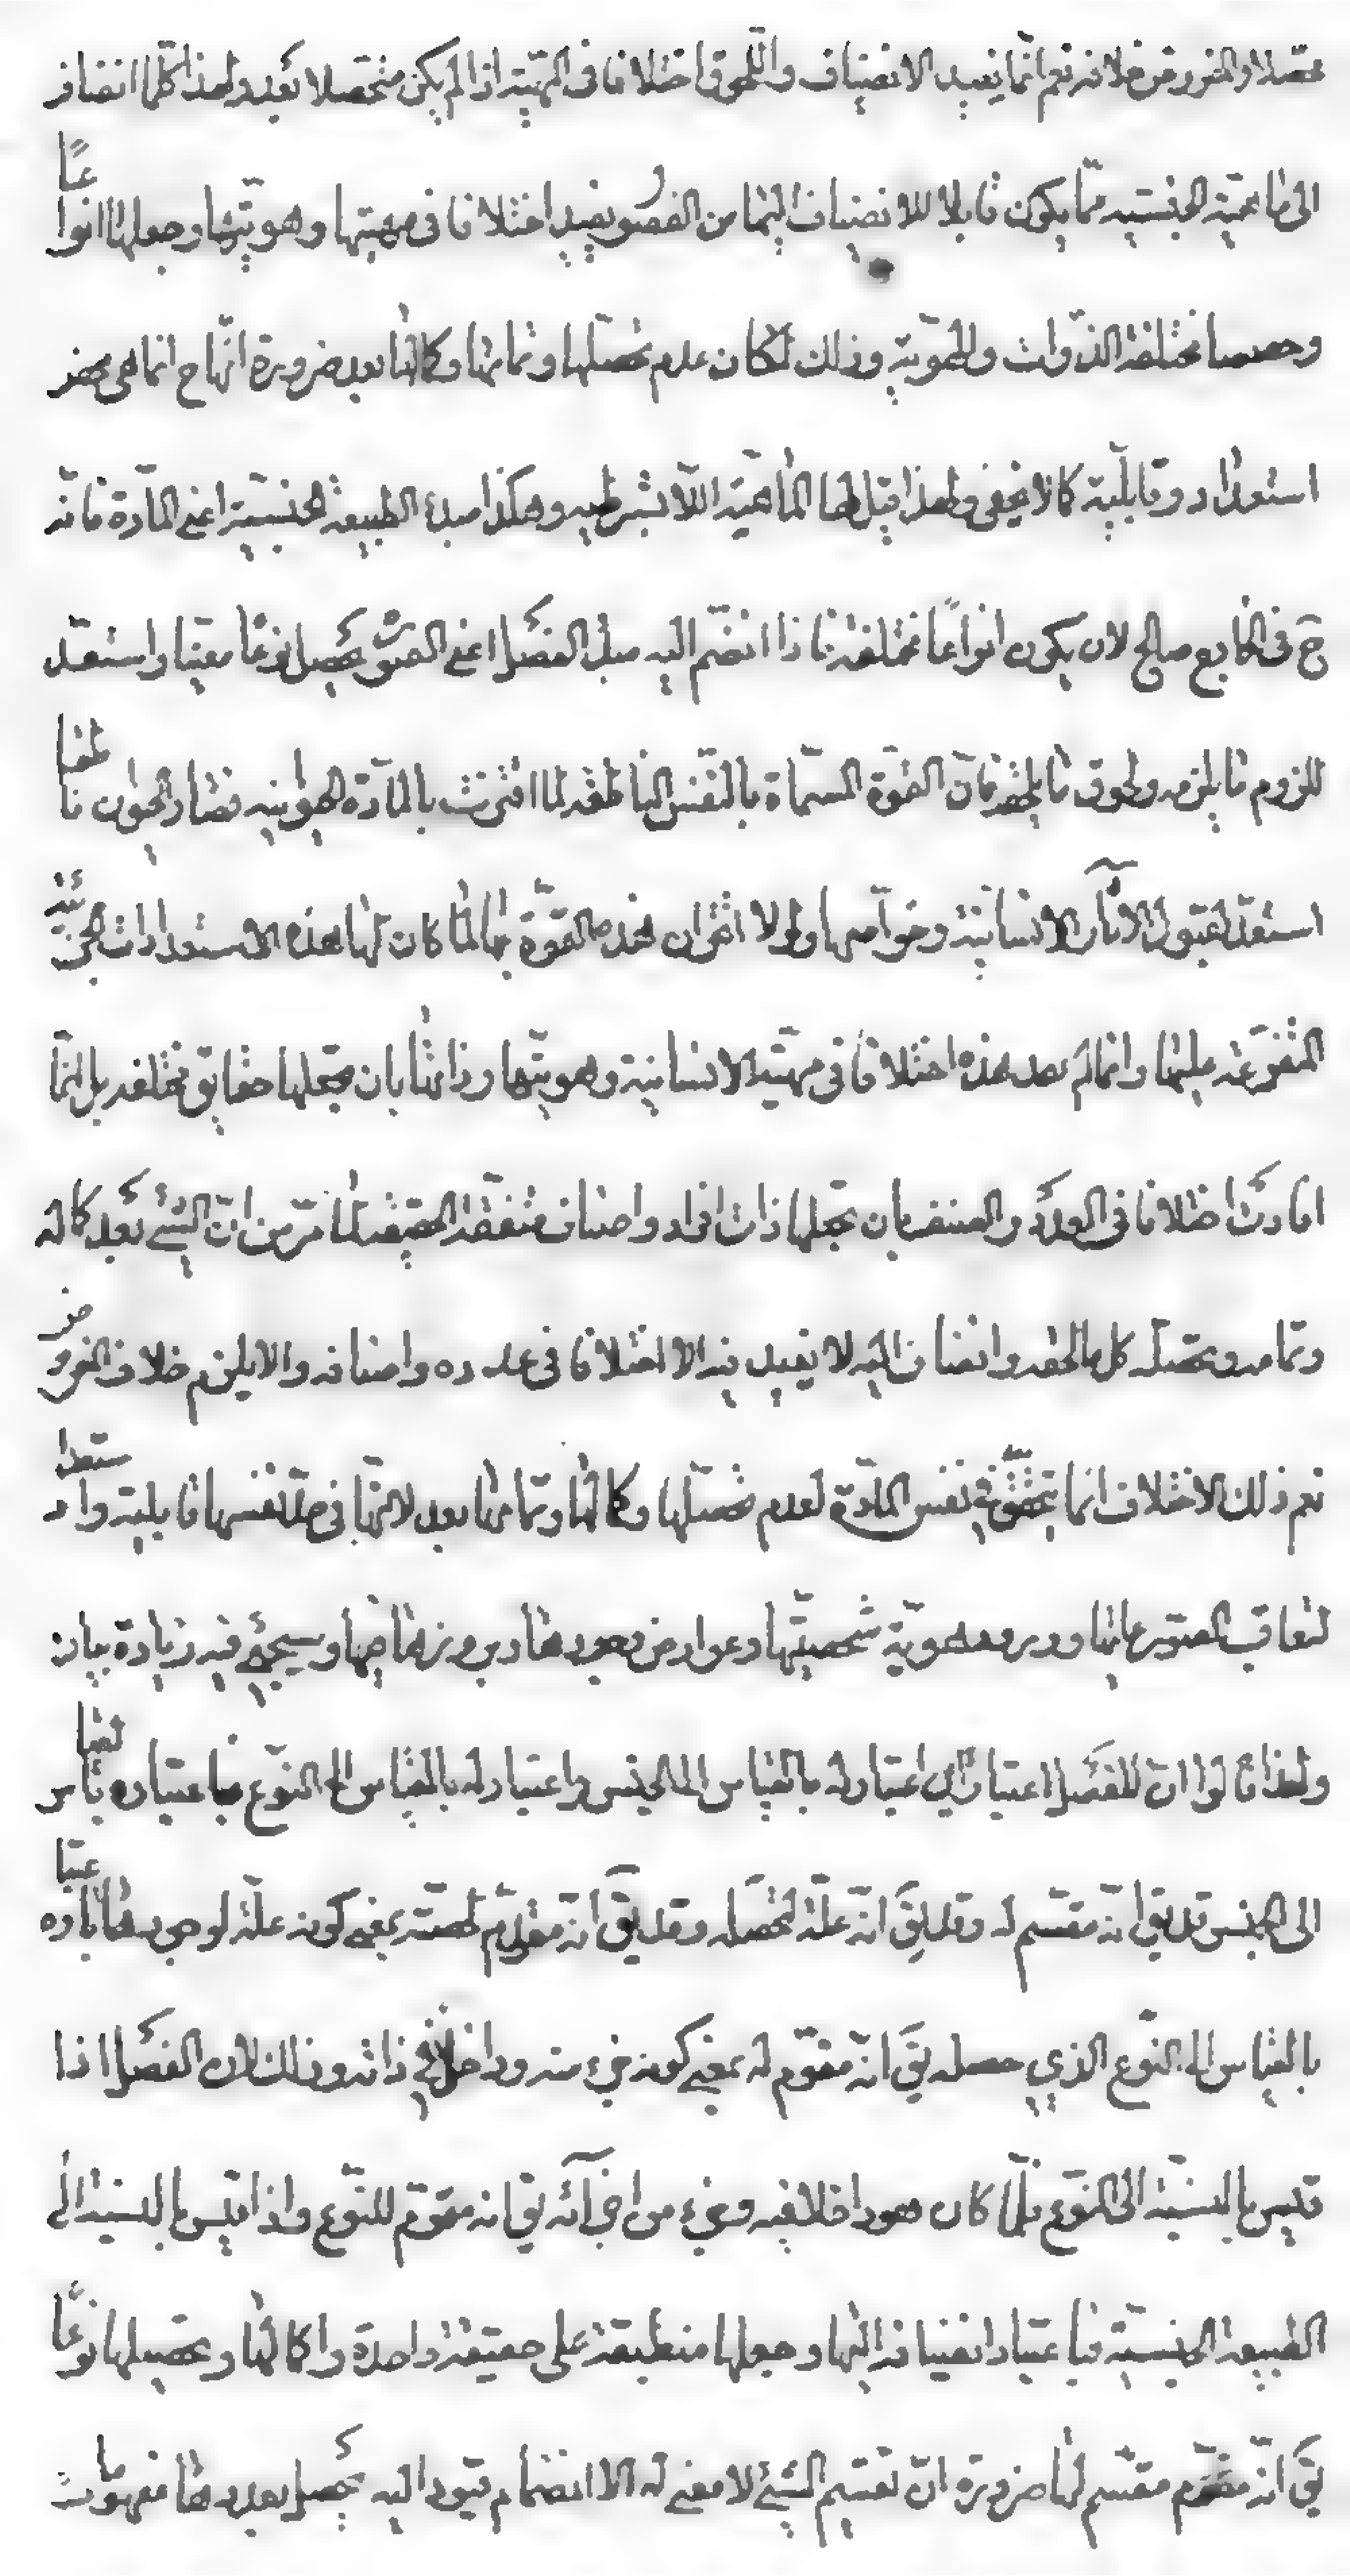 محصلا والمفروض خلافه نعم انما يفيد الانضياف واللحوق اختلافا فى المهية اذا لم يكن متحصلا بعد ولهذا كلما انضاف
الى ماهية الجنسيه مما يكون قابلا للانضياف اليها من الفصو يفيد اختلافا فى مهيتها وهويتها وجعلها انواعا
وحصصا مختلفة الذوات والهوية وذلك لمكان عدم تحصلها وتمامها وكمالها بعد ضرورة انها ح انما هى محض
استعداد وقابلية كما لا يخفى ولهذا قيل لها الماهية اللابشرطيه وهكذا مبدء الطبيعة الجنسية اعنى المادة فانه
ح فى الخارج صالح لان يكون انواعا مختلفة فاذا انضم اليه مبدء الفصل اعنى الصورة يحصل نوعا معينا واستعد
للزوم ما يلزمه ولحوق ما يلحقه فان القوة المسماة بالنفس الناطقه لما اقترنت بالمادة الحيوانيه فصار الحيوان ناطقا
استعد لقبول الاثار الانسانية وخواصها ولولا اقتران هذه القوة بها لما كان لها هذه الاستعدادات الجزئية
المتفرعة عليها وانما لم يفد هذه اختلافا فى مهية الانسانية وهويتها وذاتها بان تجعلها حقايق مختلفه بل انما
افادت اختلافا فى العدد والصنف بان تجعلها ذات افراد واصناف متفقة الحقيقة لما مر من ان الشيئ بعد كماله
وتمامه وتحصله كل ما لحقه وانضاف اليه لا يفيد فيه الا اختلافا فى عدده واصنافه والا يلزم خلاف المفروض
نعم ذلك الاختلاف انما يتحقق فى نفس المادة لعدم تحصلها وكمالها وتمامها بعد لانها فى حد نفسها قابلية واستعداد
لتعاقب الصور عليها وورود هوية شخصيتها وعوارض وجودها وبروزها فيها وسيجيئ فيه زيادة بيان
ولهذا قالوا ان للفصل اعتبارين اعتبار له بالقياس الى الجنس واعتبار له بالقياس الى النوع فباعتباره بالقياس
الى الجنس قد يق انه مقسم له وقد يق انه علة لتحصله وقد يق انه مقوم لحصته بمعنى كونه علة لوجودها باعتباره
بالقياس الى النوع الذي حصله يق انه مقوم له بمعنى كونه جزء منه وداخلا فى ذاته وذلك لان الفصل اذا
قيس بالنسبة الى النوع فلما كان هو داخلا فيه وجزء من اجزآئه يق انه مقوم للنوع واذا قيس بالنسبة الى
الطبيعة الجنسية فباعتبار انضيافه اليها وجعلها منطبقة على حقيقة واحدة واكمالها وتحصيلها نوعا
يق انه مقوم مقسم لها ضرورة ان تقسيم الشيئ لا معنى له الا انضمام قيود اليه يحصل بعددها مفهومات